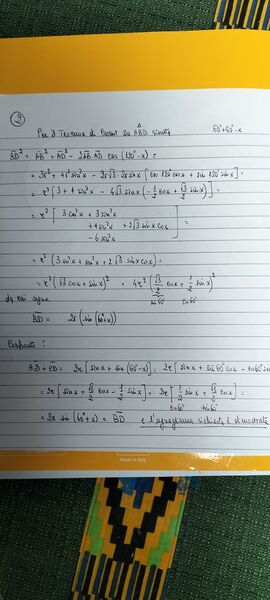 9
Per il Teorema di Carnot su ABD risulta 60°+60°-x
BD² = AB² + AD² - 2AB AD cos (120°-x) =
= 3r² + 4r² sin²x - 2r√3 · 2r sinx [cos 120° cosx + sin 120° sinx] =
= r² [3 + 4 sin²x - 4√3 sinx (-1/2 cosx + √3/2 sinx)] =
= r² [3 cos²x + 3 sin²x
+ 4 sin²x + 2√3 sinx cosx
- 6 sin²x] =
= r² (3 cos²x + sin²x + 2√3 sinx cosx) =
= r² (√3 cosx + sinx)² = 4r² (√3/2 cosx + 1/2 sinx)²
sin60° cos60°
da cui segue
BD = 2r (sin (60°+x))
AD + CD = 2r [sinx + sin (60°-x)] = 2r [sinx + sin60° cosx - cos60° sin
= 2r [sinx + √3/2 cosx - 1/2 sinx] = 2r [1/2 sinx + √3/2 cosx] =
cos60° sin60°
= 2r sin (60°+x) = BD e l'uguaglianza richiesta è dimostrata
Made in Italy